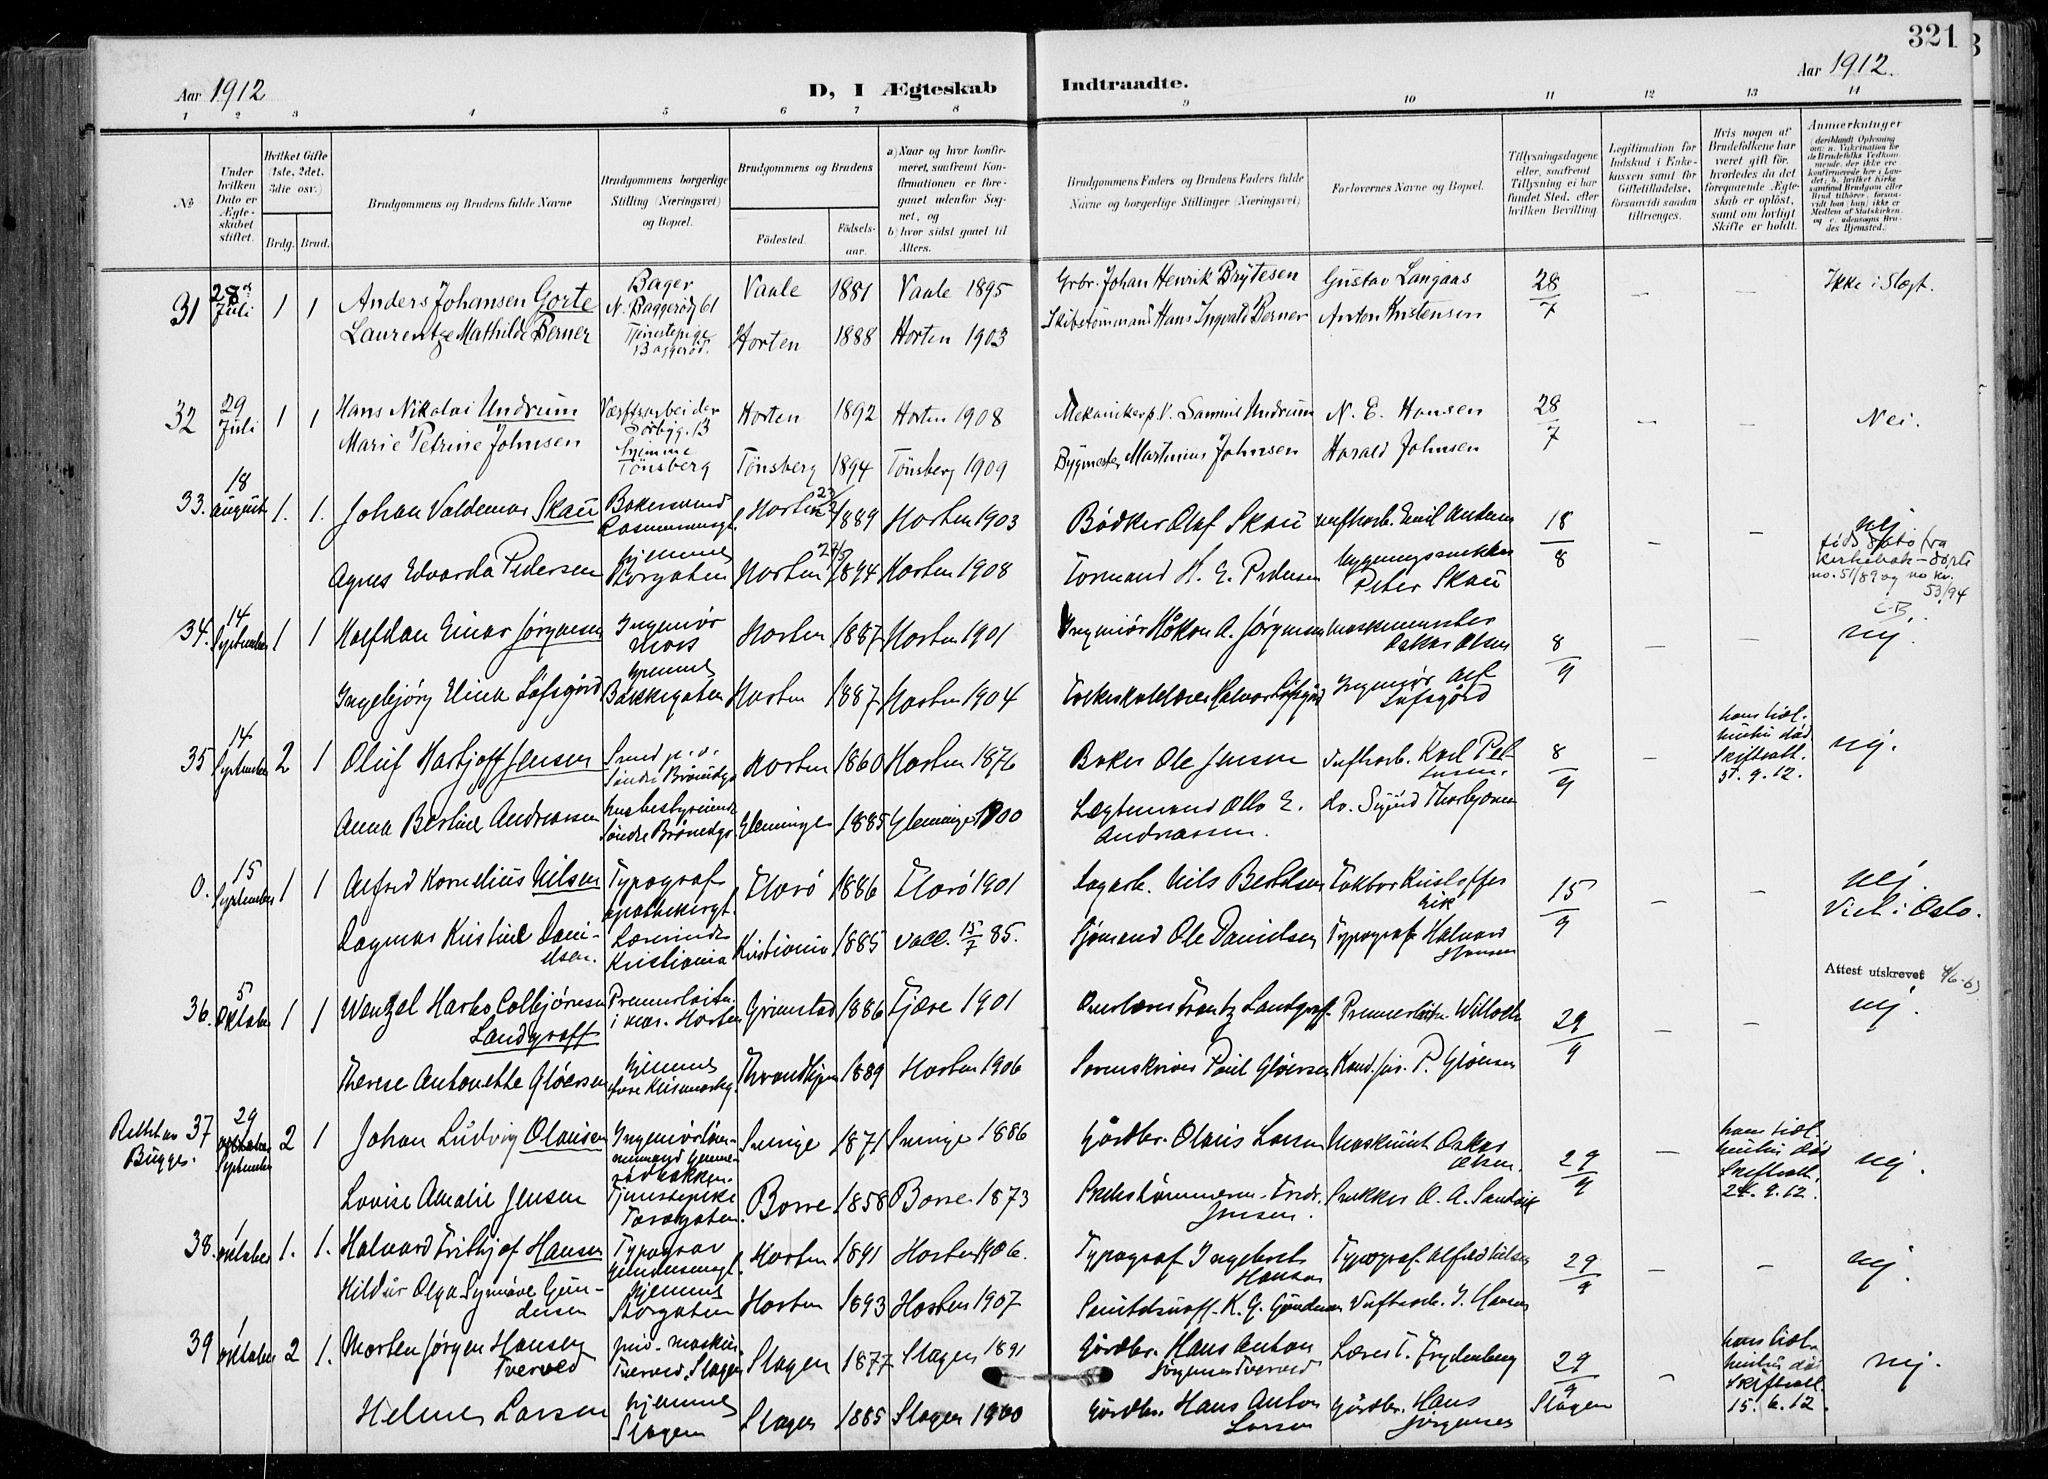 321
Aar 1912
D, I Ægteskab
Indtraadte.
Aar 1912.
1 2 3 4 5 6 7 8 9 10 11 12 13 14
No
Under hvilken Dato er Ægteskabet stiftet.
Hvilket Gifte (1ste, 2det, 3die osv.)
Brdg. Brud.
Brudgommens og Brudens fulde Navne
Brudgommens borgerlige Stilling (Næringsvei) og Bopæl.
Brudgommens og Brudens
Fødested.
Fødselsaar.
a) Naar og hvor konfirmeret, saafremt Konfirmationen er foregaaet udenfor Sognet, og
b) hvor sidst gaaet til Alters.
Brudgommens Faders og Brudens Faders fulde Navne og borgerlige Stillinger (Næringsvei)
Forlovernes Navne og Bopæl.
Tillysningsdagene eller, saafremt Tillysning ei har fundet Sted, efter hvilken Bevilling.
Legitimation for Indskud i Enkekassen samt for Giftetilladelse, forsaavidt saadan tiltrænges.
Hvis nogen af Brudefolkene har været gift før, hvorledes da det foregaaende Ægteskab er opløst, samt om lovligt Skifte er holdt.
Anmerkninger
31 28 Juli 1 1 Anders Johansen Gorte Bager N. Baggerød 61 Vaale 1881 Vaale 1895 Grbr. Johan Henrik Brytesen Gustav Langaas 28/7 - - Ikke i Slegt.
Laurentze Mathilde Berner Tjenestepige Baggerød. Horten 1888 Horten 1903 Skibstømmand Hans Ingvald Berner Anton Kristensen
32 29 Juli 1 1 Hans Nikolai Undrum Værftsarbeider Horten 1892 Horten 1908 Mekaniker p. V. Samuel Undrum N. E. Hansen 28/7 - - Nei.
Marie Petrine Johnsen hjemme Tønsberg Tønsberg 1894 Tønsberg 1909 Bygmester Martinius Johnsen Harald Johnsen
33. 18 august 1. 1. Johan Valdemar Skau Bakersvend Horten 1889 Horten 1903 Bødker Olaf Skau Emil Andersen 18/8 - - nej
Agnes Edvarda Pedersen hjemme Storgaten Horten 1894 Horten 1908 Formand H. E. Pedersen Peter Skau
no. 51/89 og no kv. 53/94
C.B.
34. 14 September 1 1 Halfdan Einar Jørgensen Ingeniør Moss Horten 1887 Horten 1901 Ingeniør Håkon A. Jørgensen Maskinmester Oskar Olsen 8/9 - - nej.
Ingebjørg Elina Løfsgård hjemme Bakkegaten Horten 1887 Horten 1904 Halvor Løfsgård Ingeniør Alf Løfsgård
35 14 September 2 1 Oluf Hartvig Jensen Smed p. v. Horten 1860 Horten 1876 Baker Ole Jensen Verftsarb. Karl 8/9 - hans tidl. hustru død Skifteatt. 5. 9. 12. nej.
Anna Bertine Andreassen Husbestyrerinde Glemminge 1885 Glemminge 1900 Otto E. Andreassen. do. Sigurd Thorbjørnsen
0. 15 September 1 1 Alfred Kornelius Nilsen Typograf Apothekergt. Florø 1886 Florø 1901 Nils Bertelsen Kristoffer Eik 15/9 - - nej. Viet i Oslo.
Dagmar Kristine Danielsen. Lærerinde Kristiania Kristiania 1885 vacc. 15/7 85. Sjømand Ole Danielsen Typograf Halvard Hansen
Attest utskrevet 4/6-63
36. 5 Oktober 1 1 Wenzel Harbo Colbjørnsen Landgraff Premierløitn. i mar. Horten Grimstad 1886 Fjære 1901 Overlærer Frantz Landgraff Premierløitn Willoch 29/9 - - nej.
Therese Antonette Gløersen hjemme Throndhjem 1889 Horten 1906 Sorenskriver Paul Gløersen Kand. jur. P. Gløersen
Rettet av Bugge.
37 29 September 2 1 Johan Ludvig Olausen Svinge 1871 Svinge 1886 Gårdbr. Olaus Larsen Maskinist Oskar Olsen. 29/9 - hans tidl. hustru død Skifteatt. 24. 9. 12. nej.
Lovise Amalie Jensen Tjenestepike Torvegaten. Borre 1858 Borre 1873 Fredr. Jensen. Snekker O. A. Sandvik
38. Oktober 1. 1. Halvard Frithjof Hansen Typograf Horten 1891 Horten 1906. Typograf Ingebret Hansen Typograf Alfred Nilsen 29/9 - - nej.
Hildur Olga Synnøve Gundersen hjemme Storgaten Horten 1893 Horten 1907 K. G. Gundersen Verftsarb. J. Hansen
39 1 Oktober 2 1. Morten Jørgen Hansen Tverved Tverved, Slagen Slagen 1877 Slagen 1891 Gårdbr. Hans Anton Jørgensen Tverved Lærer T. Frydenberg 29/9 - hans tidl. hustru død Skifteatt. 15. 6. 12. nej.
Helmer Larsen hjemme Slagen Slagen 1885 Slagen 1900 Gårdbr. Hans Anton Larsen Gårdbr. Hans Jørgensen Slagen